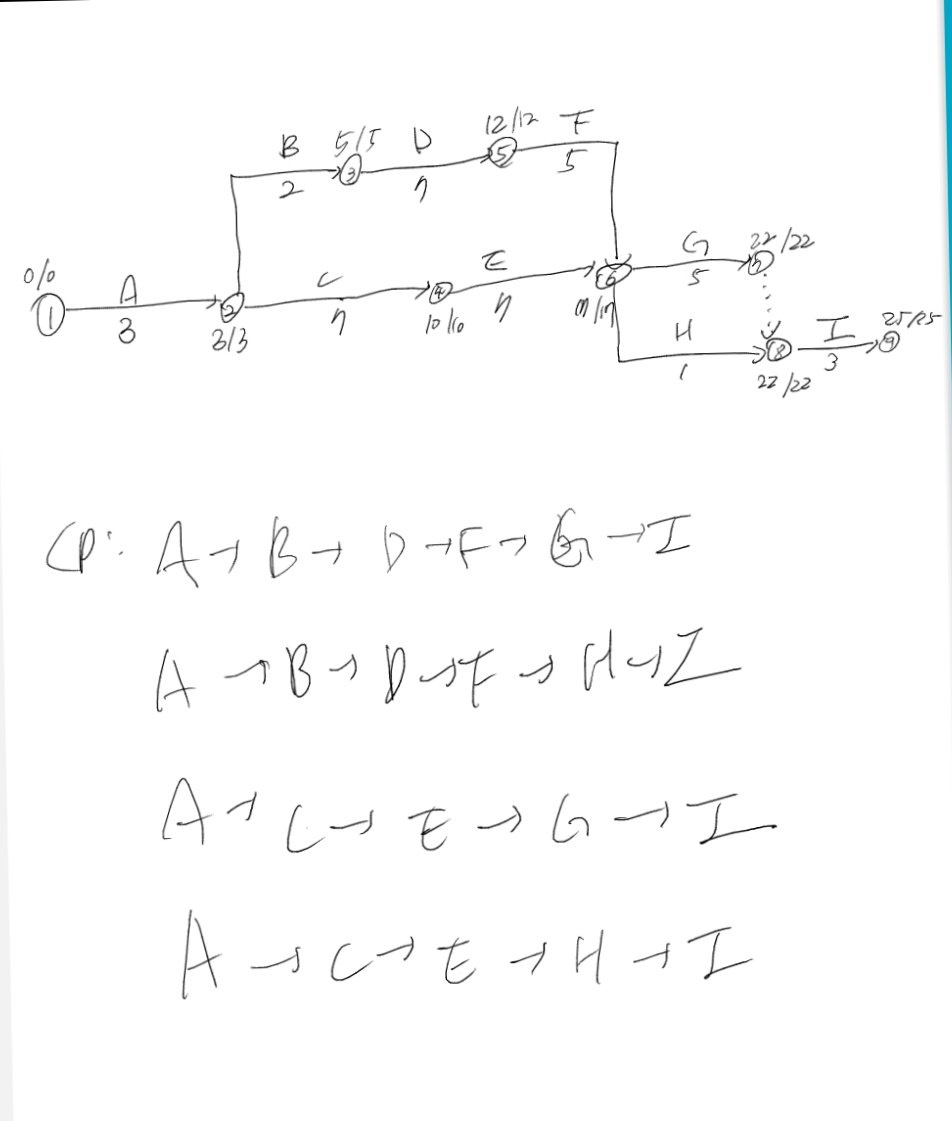 B 5/5 D 12/12 F
2 3 7 5 5
0/0 A C E G 22/22
1 3 2 7 4 7 6 5 7
3/3 10/10 17/17
H I 25/25
1 8 3 9
22/22
CP: A → B → D → F → G → I
A → B → D → F → H → I
A → C → E → G → I
A → C → E → H → I